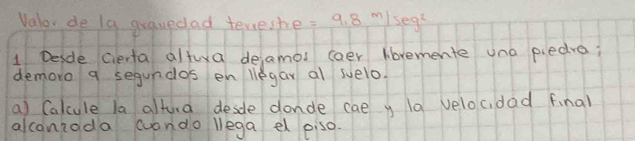 Valor de la gravedad terrestre = 9.8 m/seg²
1 Desde cierta altura dejamos caer libremente una piedra;
demora 9 segundos en llegar al suelo.
a) Calcule la altura desde donde cae y la velocidad final
alcanzada cuando llega el piso.